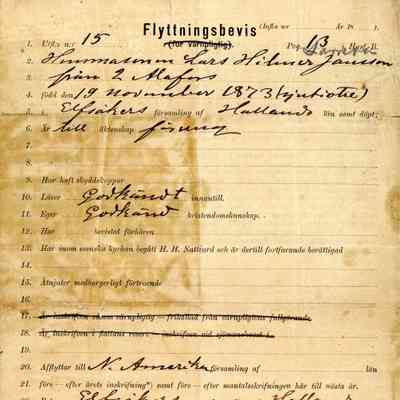 Flyttningsbevis (Infls nr Är 18 .)
(för värnpligtig).
1. Utfls n:r 15 Pag. 13
2. Hemmasonen Lars Hilmer Jansson
3. från 2 Alafors
4. född den 19 November 1873 (sjutiotre)
5. i Elfsåkers församling af Hallands län samt döpt;
6. Är till äktenskap
7.
8.
9. Har haft skyddskoppor
10. Läser Godkändt innantill.
11. Eger Godkänd kristendomskunskap.
12. Har bevistat förhören
13. Har inom svenska kyrkan begått H. H. Nattvard och är dertill fortfarande berättigad
14.
15. Åtnjuter medborgerligt förtroende
16.
17. Är inskrifven såsom värnpligtig — frikallad från värnpligtens fullgörande
18. Är inskrifven i flottans
19.
20. Afflyttar till N. Amerika församling af län
21. före — efter årets inskrifning*) samt före — efter mantalsskrifningen här till nästa år.
Elfsåkers Hallands